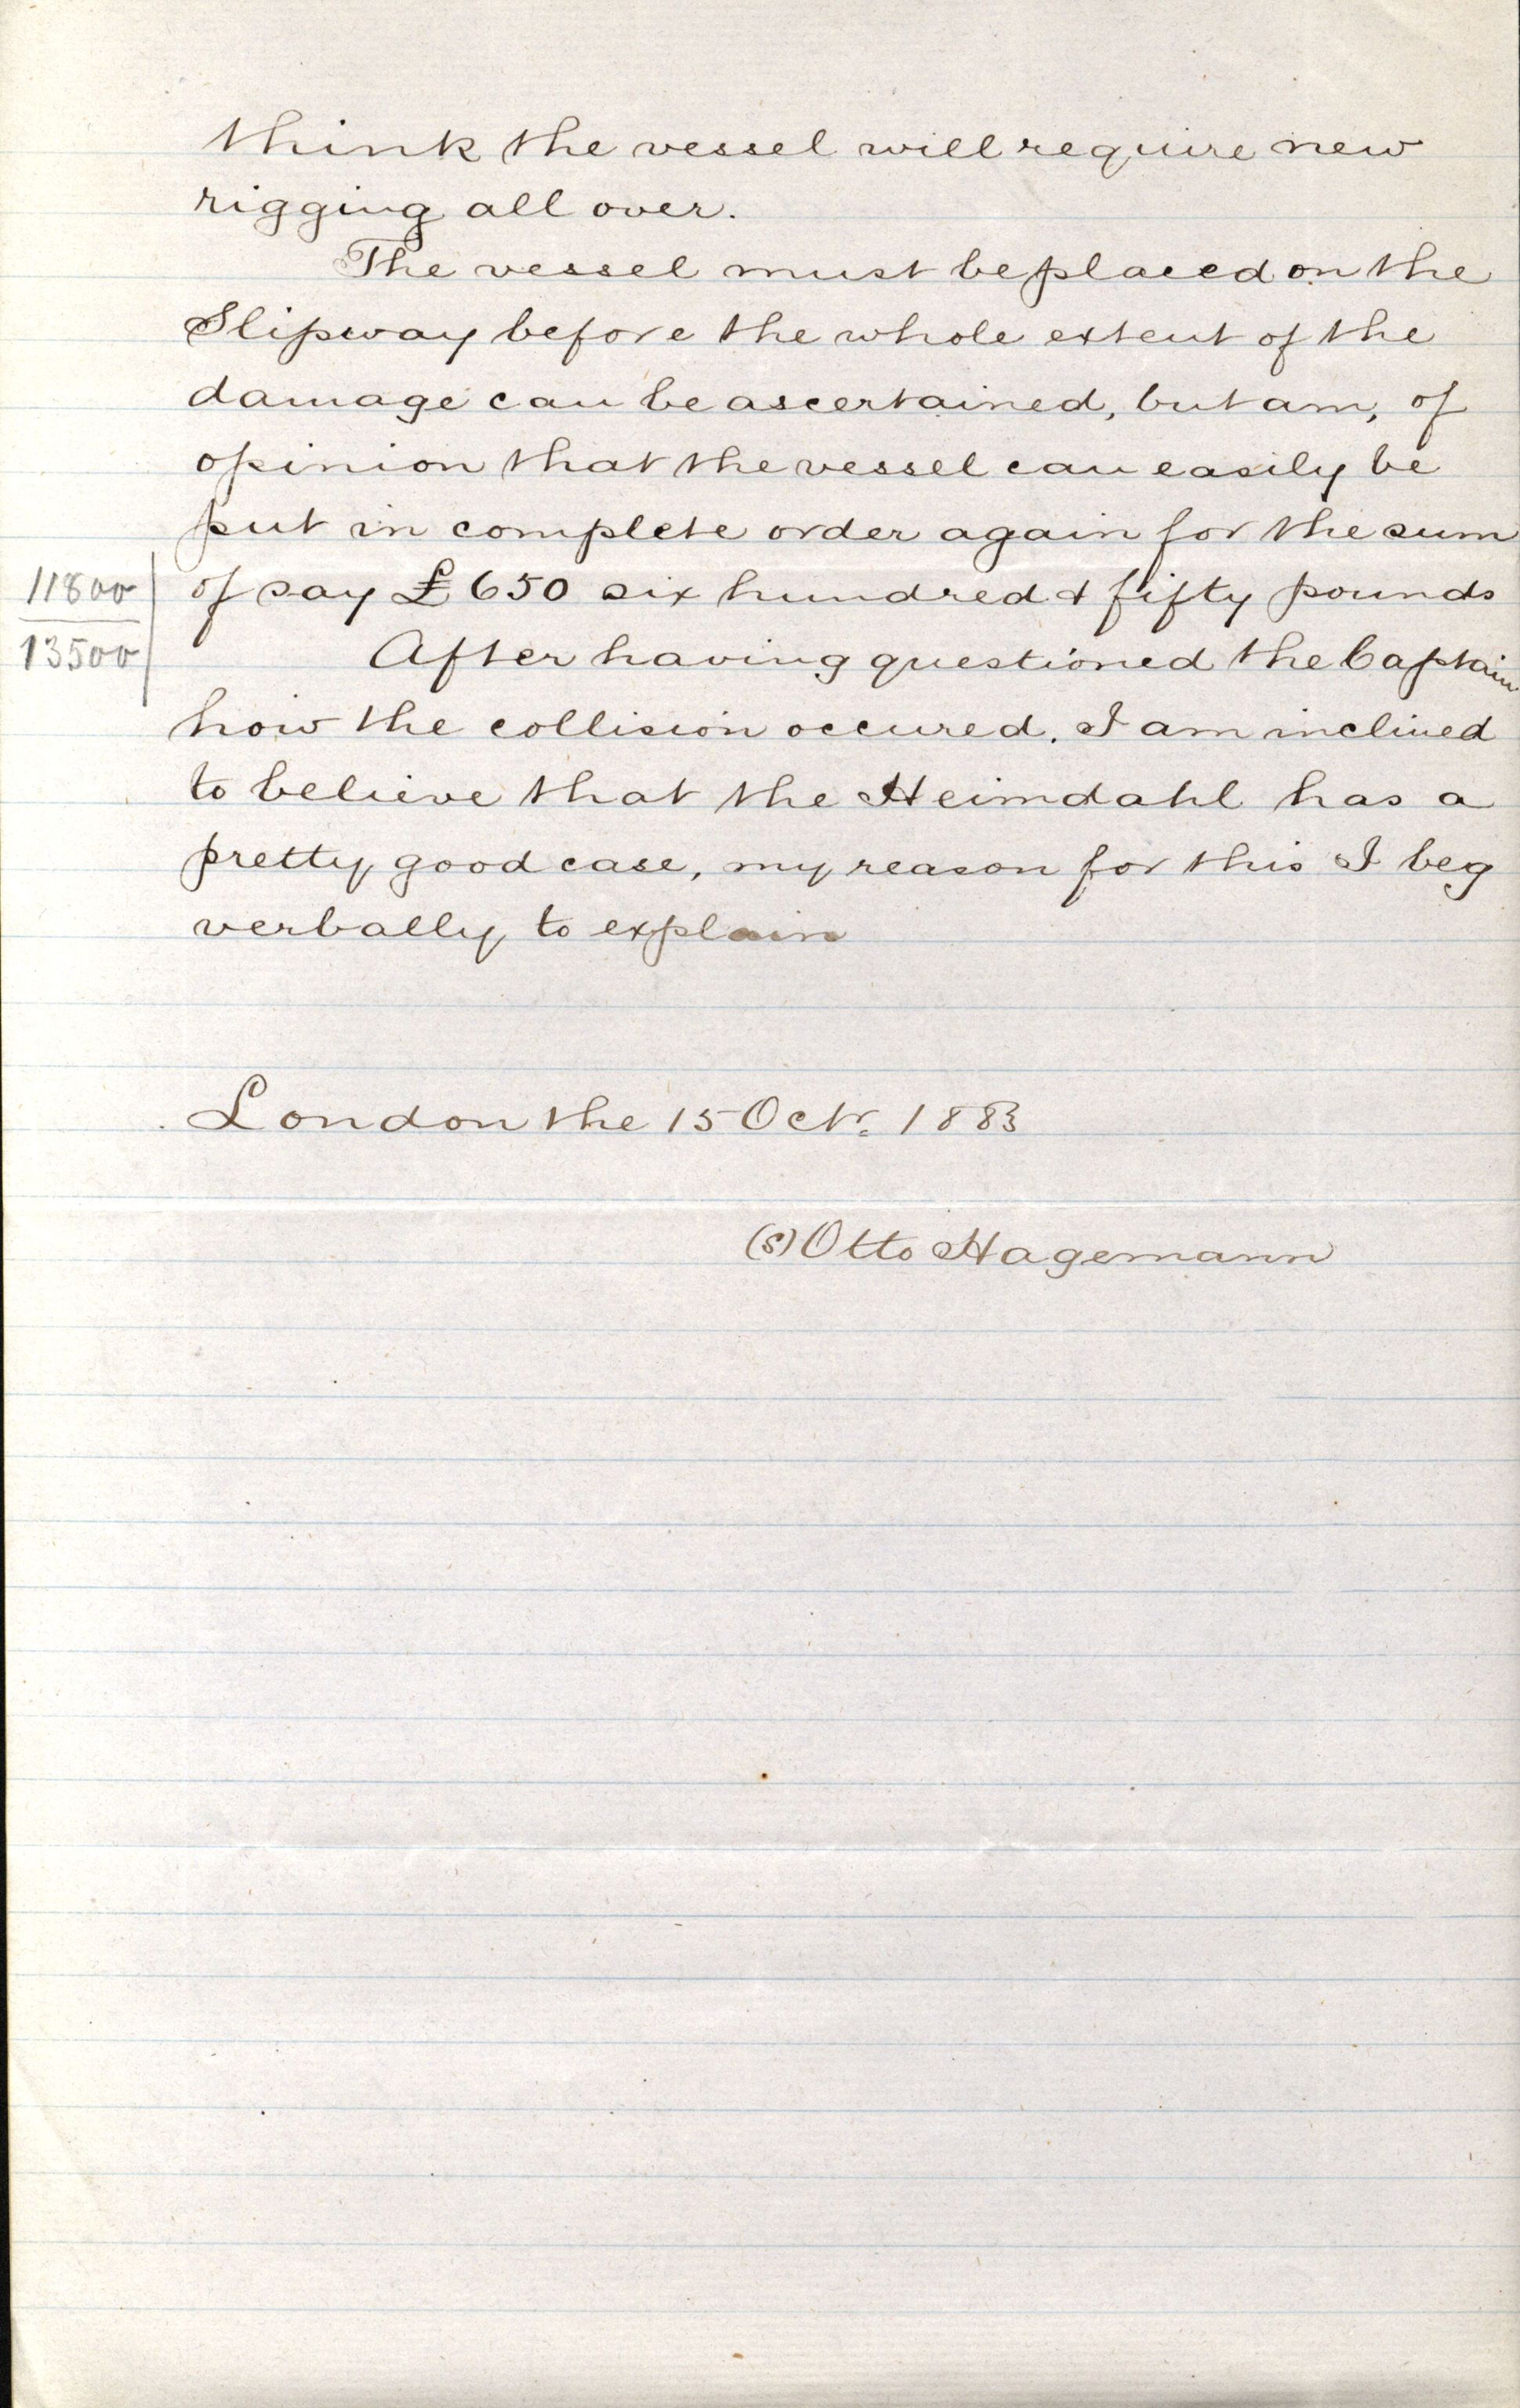 think the vessel will require new
rigging all over.
The vessel must be placed on the
Slipway before the whole extent of the
damage can be ascertained, but am, of
opinion that the vessel can easily be
put in complete order again for the sum
11800
of say £650 six hundred & fifty pounds
13500
After having questioned the Captain
how the collision occured. I am inclined
to believe that the Heimdahl has a
pretty good case, my reason for this I beg
verbally to explain
London the 15 Octr. 1883
(s) Otto Hagemann